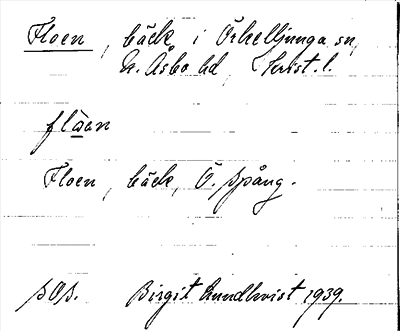 Floen, bäck i Örkelljunga sn,
N. Åsbo hd, Krist. l.
flàen
Floen, bäck, Ö. Spång.
SOS. Birgit Lundkvist 1939.